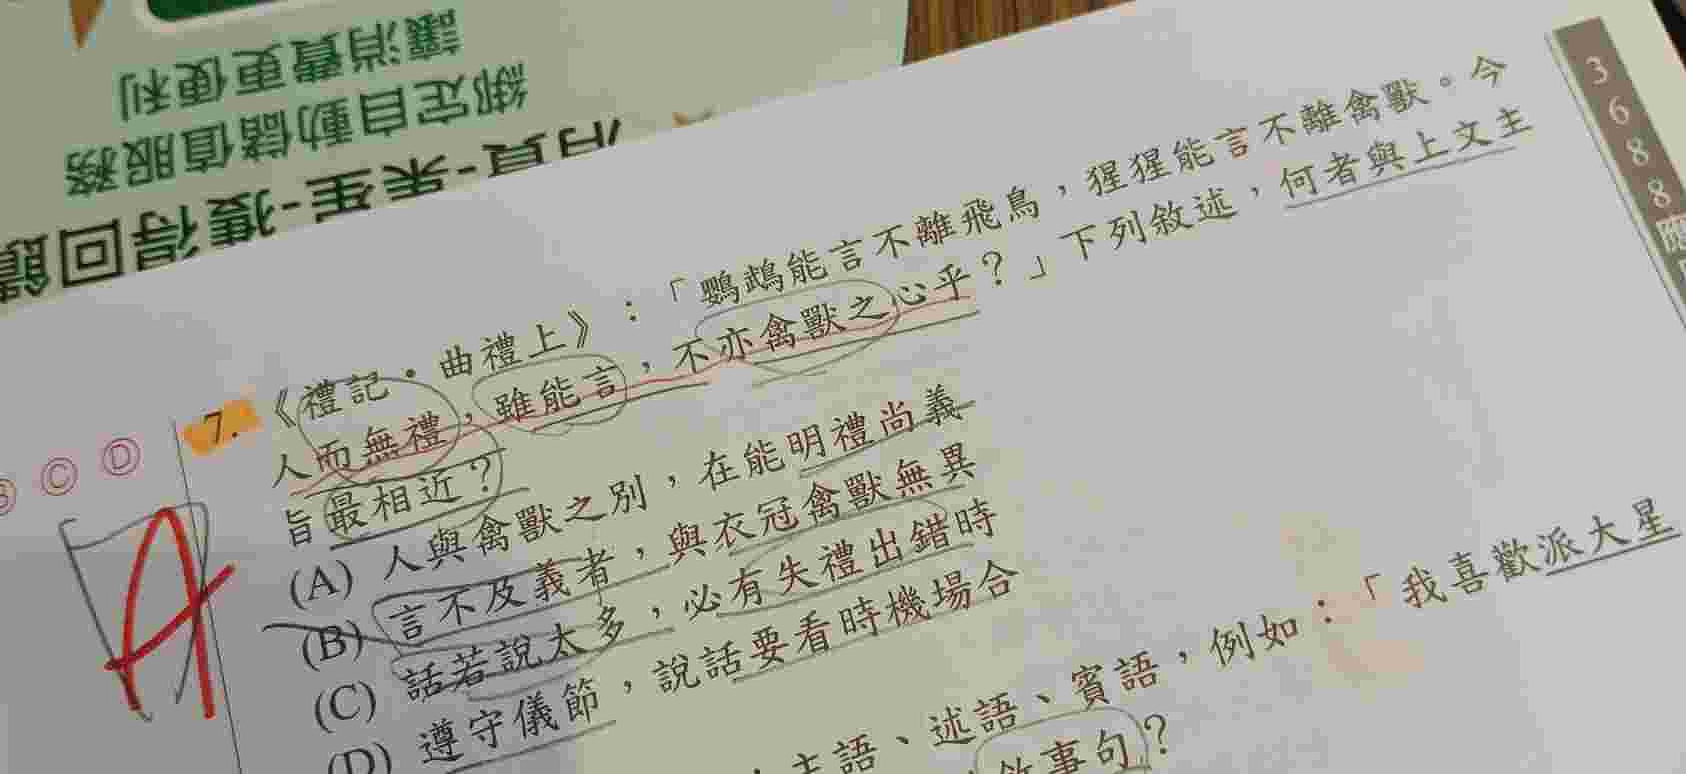 讓消費更便利
綁定自動儲值服務
獲得回饋
3688
Ⓒ Ⓓ
A
7. 《禮記・曲禮上》：「鸚鵡能言不離飛鳥，猩猩能言不離禽獸。今
人而無禮，雖能言，不亦禽獸之心乎？」下列敘述，何者與上文主
旨最相近？
(A) 人與禽獸之別，在能明禮尚義
(B) 言不及義者，與衣冠禽獸無異
(C) 話若說太多，必有失禮出錯時
(D) 遵守儀節，說話要看時機場合
主語、述語、賓語，例如：「我喜歡派大星
敘事句？